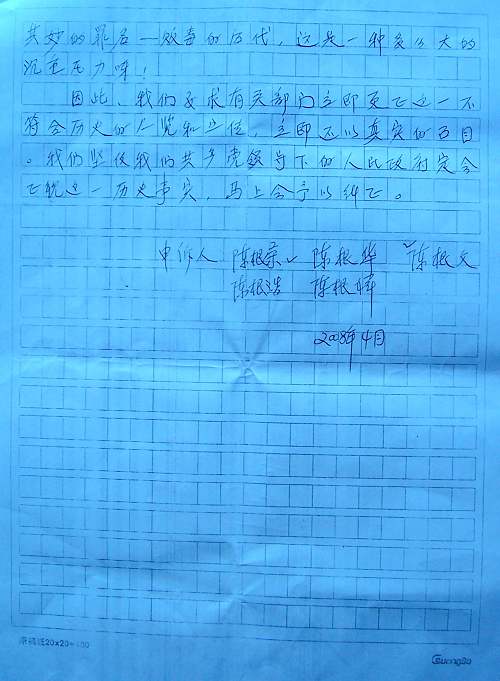 其妙的罪名—贩毒的后代，这是一种多么大的
沉重压力呀！
因此，我们要求有关部门立即更正这一不
符合历史的 和 ，立即还以真实的面目
。我们坚信我们共产党领导下的人民政府定会
正视这一历史事实，马上会予以纠正。
申诉人 陈根荣 陈根华 陈根文
陈根浩 陈根
2008年4月
原稿纸20×20=400
GuangBo